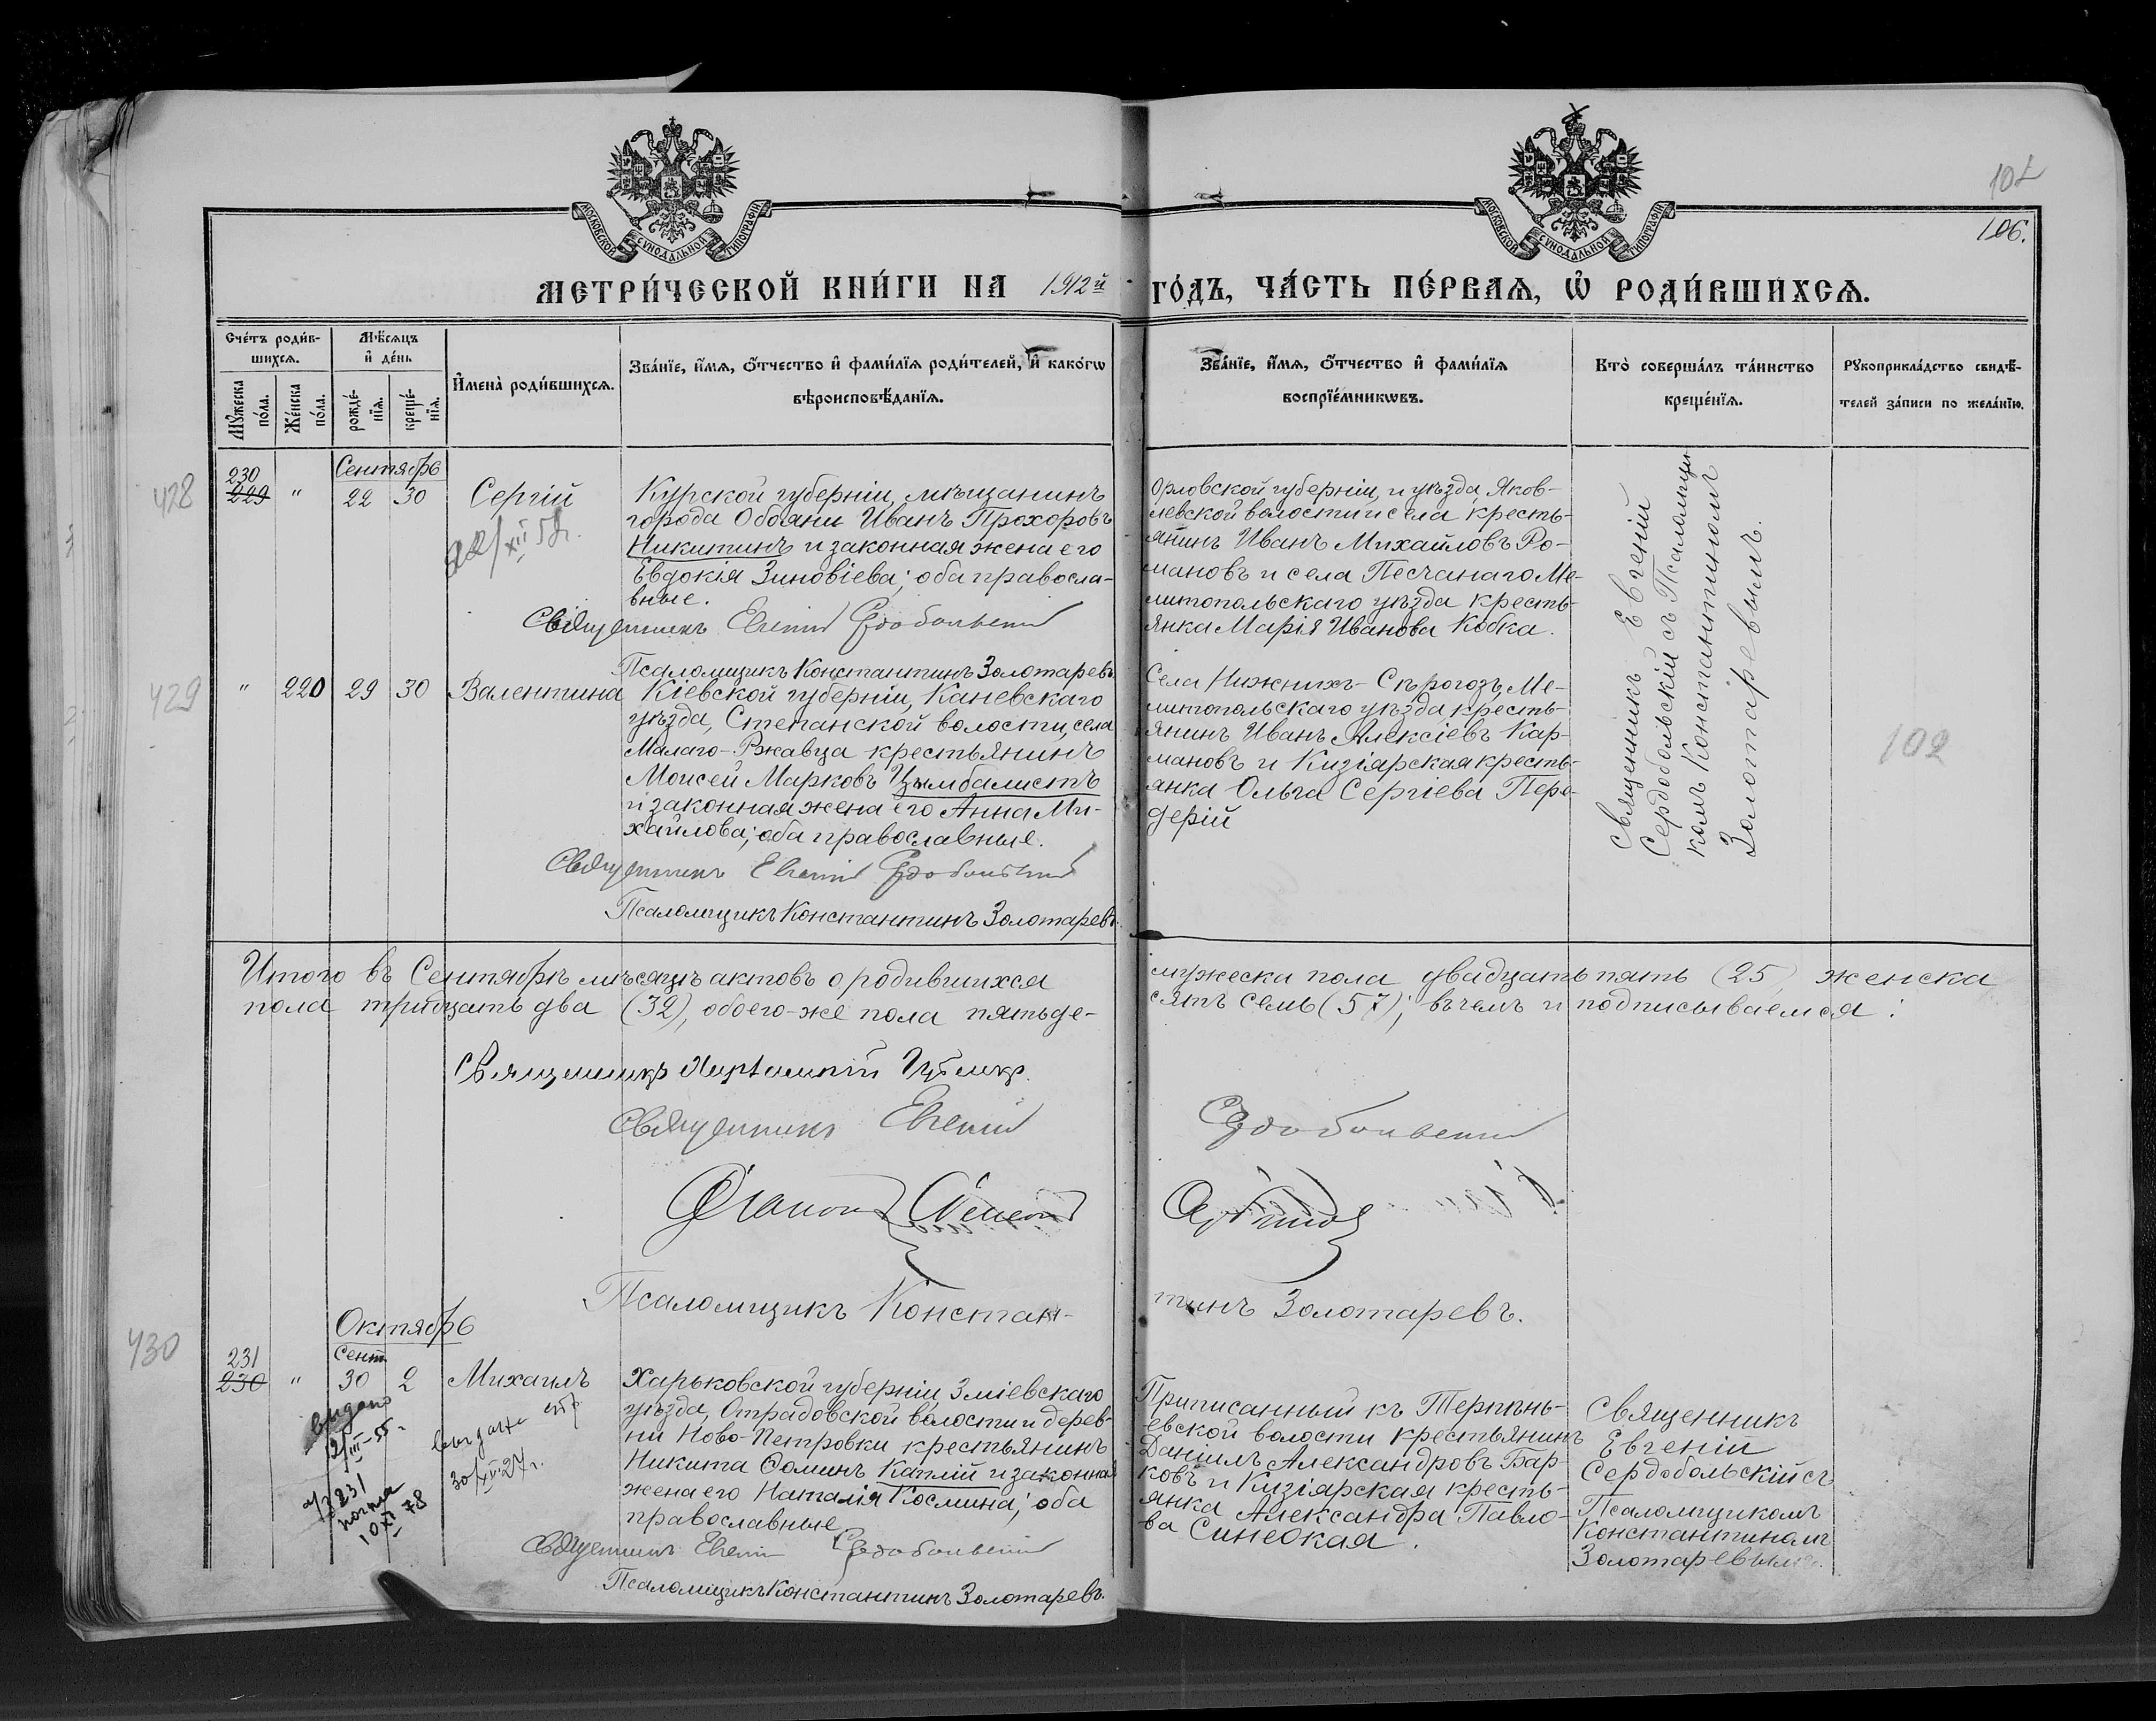 102
106.
МОСКОВСКОЙ СѴНОДАЛЬНОЙ ТИПОГРАФІИ
МОСКОВСКОЙ СѴНОДАЛЬНОЙ ТИПОГРАФІИ
МЕТРИ́ЧЕСКОЙ КНИ́ГИ НА 1912й ГО́ДЪ, ЧА́СТЬ ПЕ́РВАѦ, Ѡ РОДИ́ВШИХСѦ.
Сче́тъ роди́в-
шихся.
Му́жеска по́ла.
Же́нска по́ла.
Мѣ́сяцъ
и де́нь
рожде́-
нїя.
креще́-
нїя.
Имена̀ роди́вшихся.
Зва́нїе, и́мя, о́тчество и фами́лїя роди́телей, и како́гѡ
вѣроисповѣ́данїя.
Зва́нїе, и́мя, о́тчество и фами́лїя
воспрїе́мникѡвъ.
Кто̀ соверша́лъ та́инство
креще́нїя.
Рꙋкоприкла́дство свидѣ́-
телей за́писи по жела́нїю.
428
230
229
"
Сентябрь
22 30
Сергій
Курской губерніи, мѣщанинъ
города Обояни Иванъ Прохоровъ
Никитинъ и законная жена его
Евдокія Зиновіева; оба правосла-
вные.
Священникъ Евгеній Сердобольскій
Псаломщикъ Константинъ Золотаревъ.
Орловской губерніи, и уѣзда, Яков-
левской волости и села кресть-
янинъ Иванъ Михайловъ Ро-
мановъ и села Песчанаго Ме-
литопольскаго уѣзда кресть-
янка Марія Иванова Кобка.
Священникъ Евгеній
Сердобольскій съ Псаломщи-
комъ Константиномъ
Золотаревымъ.
429
" 220 29 30
Валентина
Кіевской губерніи, Каневскаго
уѣзда, Степанской волости, села
Малаго-Ржавца крестьянинъ
Моисей Марковъ Цымбалистъ
и законная жена его Анна Ми-
хайлова; оба православные.
Священникъ Евгеній Сердобольскій
Псаломщикъ Константинъ Золотаревъ.
Села Нижнихъ-Сѣрогозъ, Ме-
литопольскаго уѣзда кресть-
янинъ Иванъ Алексіевъ Кар-
мановъ и Кизіярская кресть-
янка Ольга Сергіева Пере-
дерій
102
Итого въ Сентябрѣ мѣсяцѣ актовъ о родившихся мужеска пола двадцать пять (25), женска
пола тридцать два (32), обоего-же пола пятьде- сятъ семь (57); въ чемъ и подписываемся:
Священникъ
Священникъ Евгеній Сердобольскій
Псаломщикъ Констан- тинъ Золотаревъ.
430
Октябрь
231
230
"
Сент.
30 2
Михаилъ
выдано
12/III-55.
выдано
30/XII 27г.
а/з 231
10 XI 78
Харьковской губерніи, Зміевскаго
уѣзда, Отрадовской волости и дерев-
ни Ново-Петровки крестьянинъ
Никита Ѳоминъ Каплій и законная
жена его Наталія Космина; оба
православные.
Священникъ Евгеній Сердобольскій
Псаломщикъ Константинъ Золотаревъ.
Приписанный къ Терпѣнь-
евской волости крестьянинъ
Даніилъ Александровъ Бар-
ковъ и Кизіярская кресть-
янка Александра Павло-
ва Синеокая.
Священникъ
Евгеній
Сердобольскій съ
Псаломщикомъ
Константиномъ
Золотаревымъ.